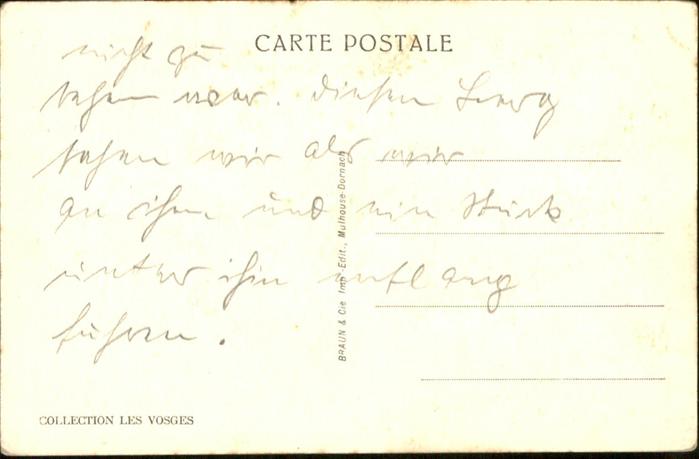 CARTE POSTALE
nicht zu
sehen war. Diesen Berg
sahen wir als wir
an ihm und ein Stück
unter ihm entlang
fuhren.
BRAUN & Cie Imp.-Edit., Mulhouse-Dornach
COLLECTION LES VOSGES